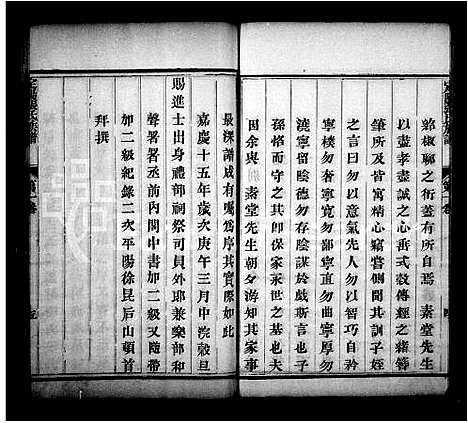 兹椒聊之衍蓄有所自焉 素堂先生
以盡孝盡誠之心垂式穀傳經之緒簪
筆所皆寓精心竊嘗側聞其訓子姪
之言曰勿以意氣先人勿以智巧斜人
寧樸勿奢寧寬勿鄙寧直勿曲寧厚勿
澆寧留陰德勿存陰謀於戲斯言也子
孫恪而守之其即保家永世之基也夫
因余與 素堂先生朝夕游知其家事
最深譜成有囑爲序其實際如此
嘉慶十五年歲次庚午三月中浣穀旦
賜進士出身禮部祠祭司員外郎兼樂部和
聲署署丞前內閣中書加二級又隨帶
加二級紀錄二次平陽徐昆后山頓首
拜撰